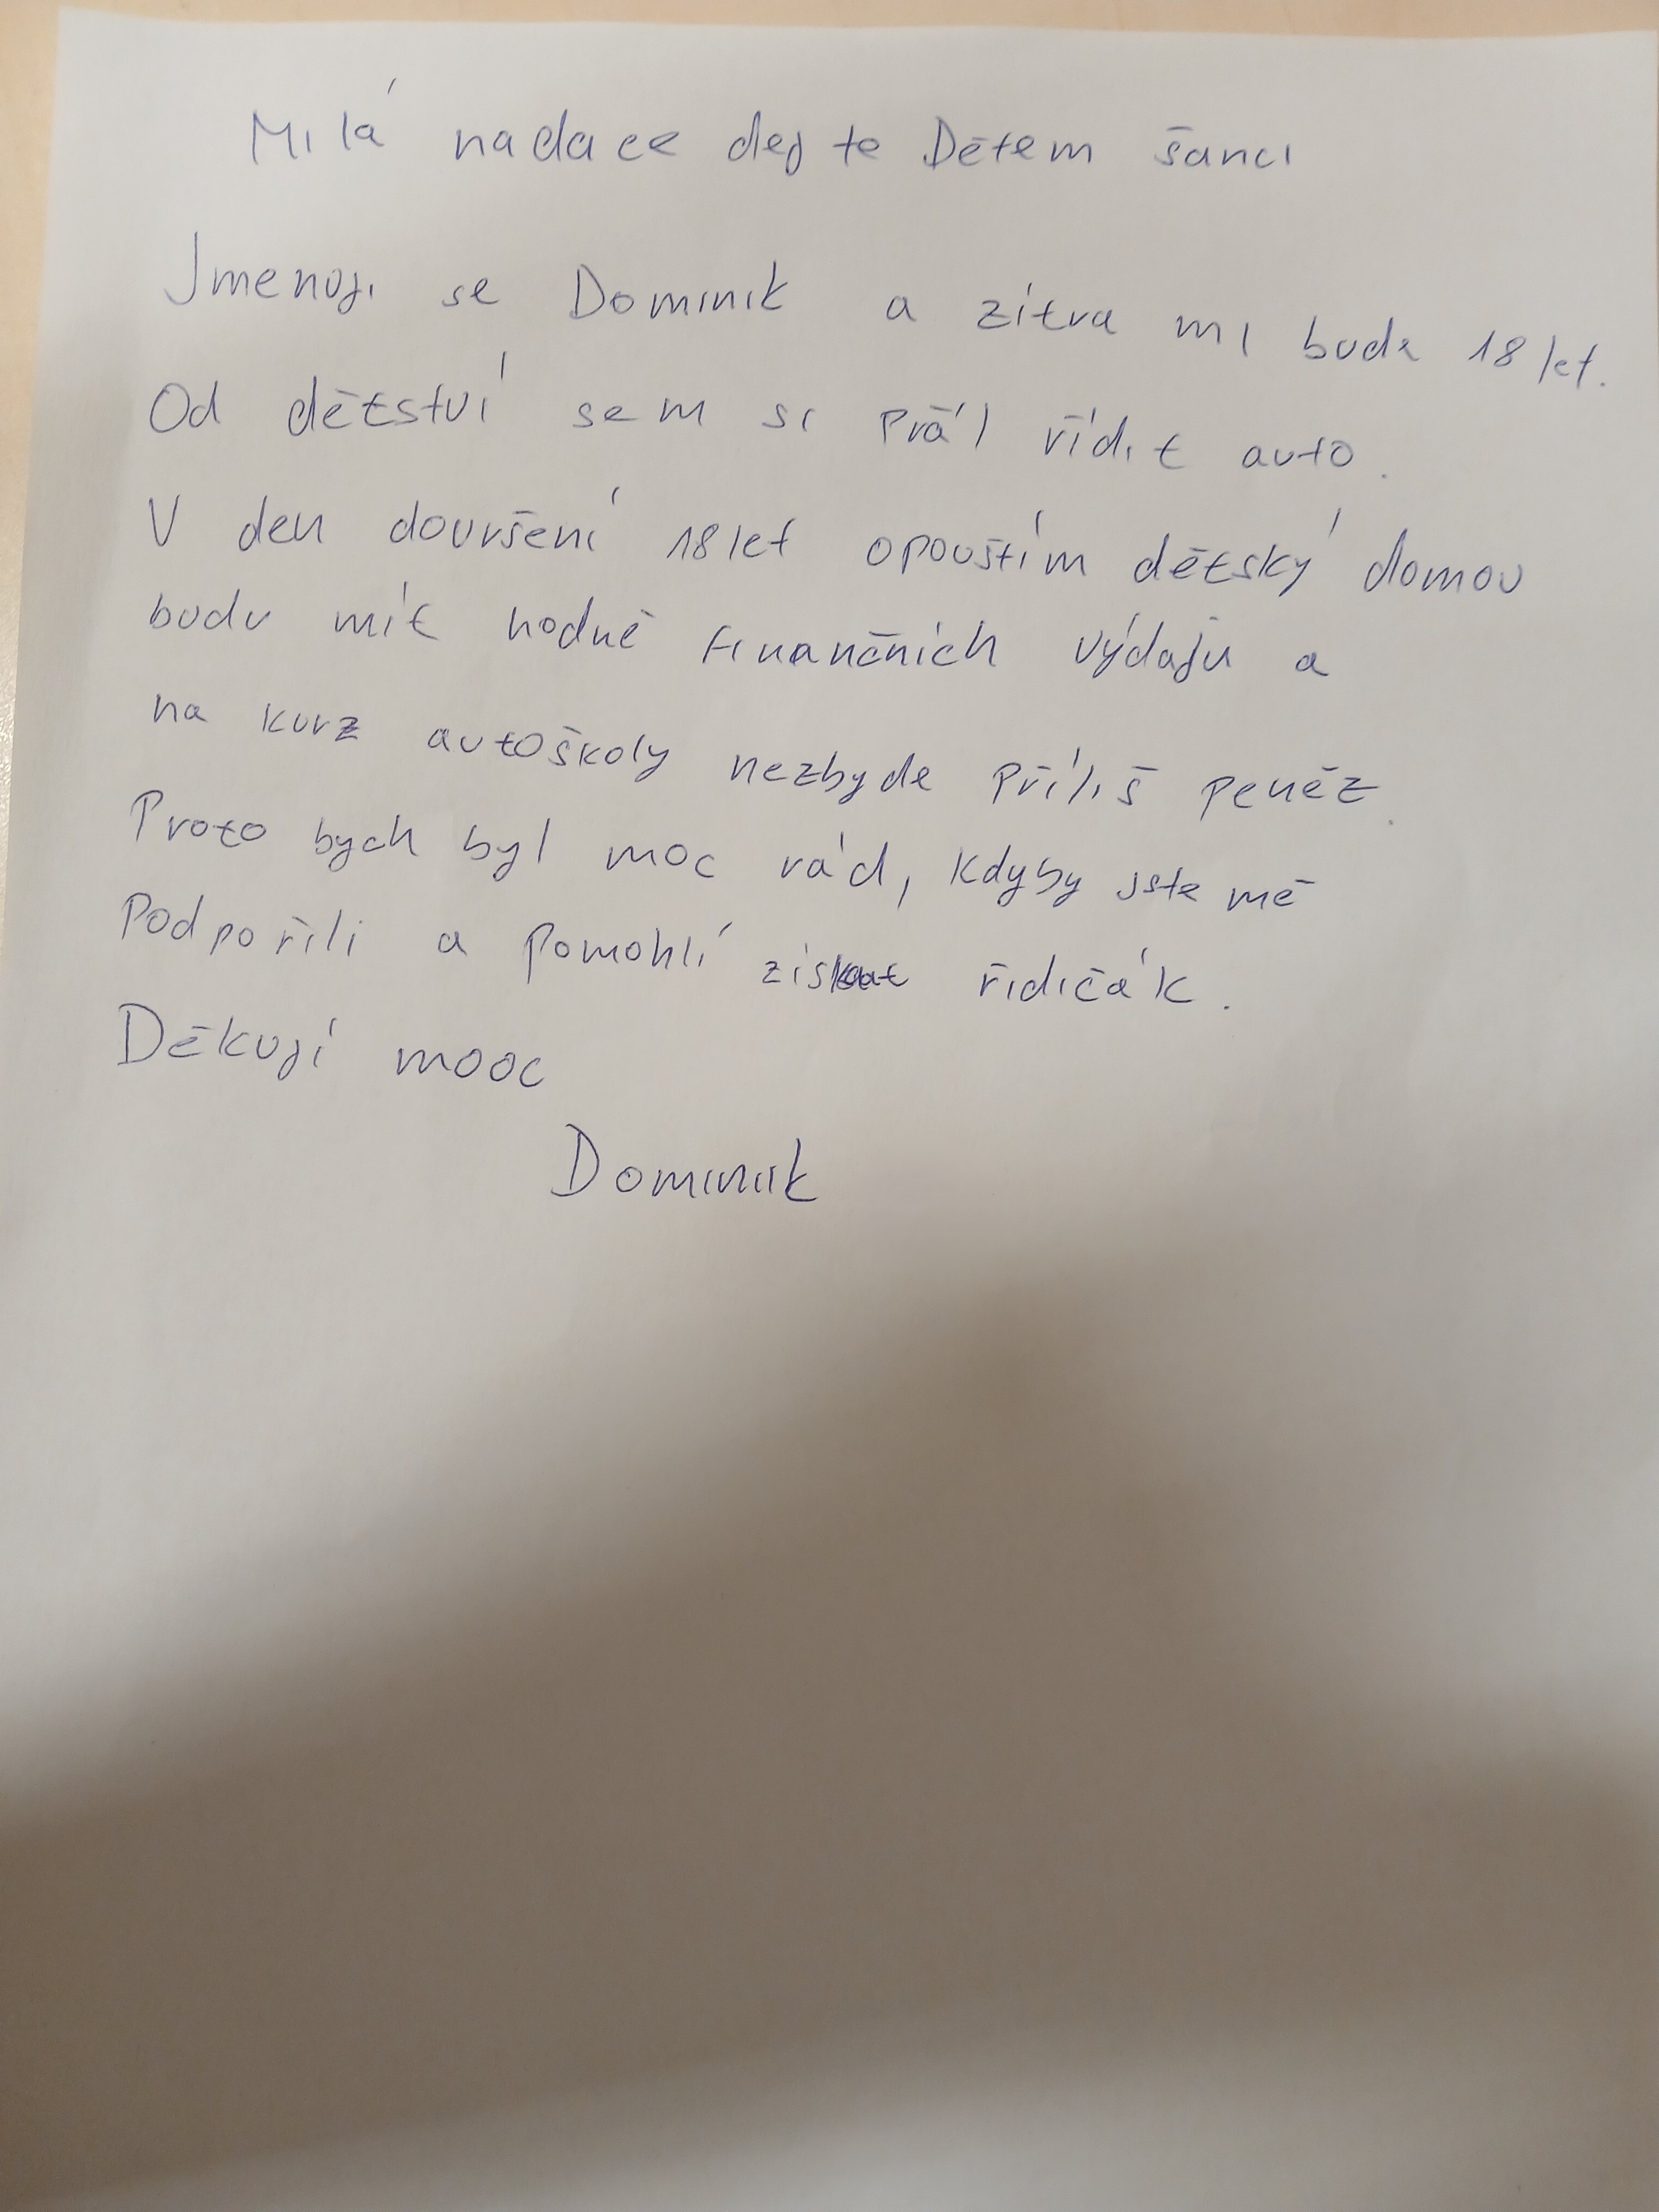 Milá nadace dejte Dětem šanci
Jmenuji se Dominik a zítra mi bude 18 let.
Od dětství sem si přál řídit auto.
V den dovršení 18 let opouštím dětský domov
budu mít hodně finančních výdajů a
na kurz autoškoly nezbyde příliš peněz.
Proto bych byl moc rád, kdyby jste mě
Podpořili a pomohlí získat řidičák.
Děkuji mooc
Dominik